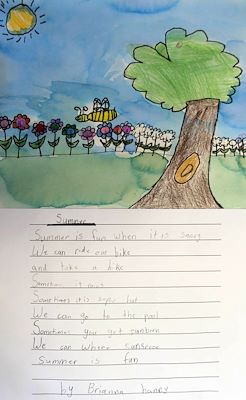 Summer
Summer is fun when it is
We can ride our bike
and take a hike
Sometimes it
Sometimes it is super hot
We can go to the pool
Sometimes you get sunburn
We can wheer sunscree
Summer is fun
by Brianna